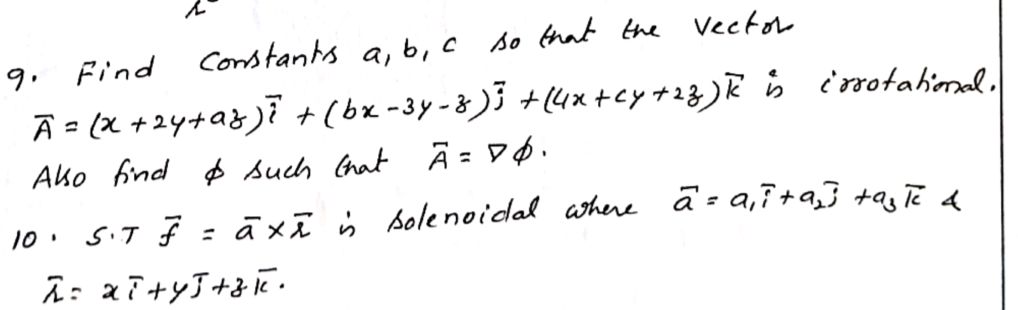 9. Find Constants a, b, c so that the vector
Ā = (x + 2y + az) ī + (bx - 3y - z) j̄ + (4x + cy + 2z) k̄ is irrotational.
Also find φ such that Ā = ∇φ.
10. S.T f̄ = ā × r̄ is solenoidal where ā = a₁ ī + a₂ j̄ + a₃ k̄ &
r̄ = x ī + y j̄ + z k̄.